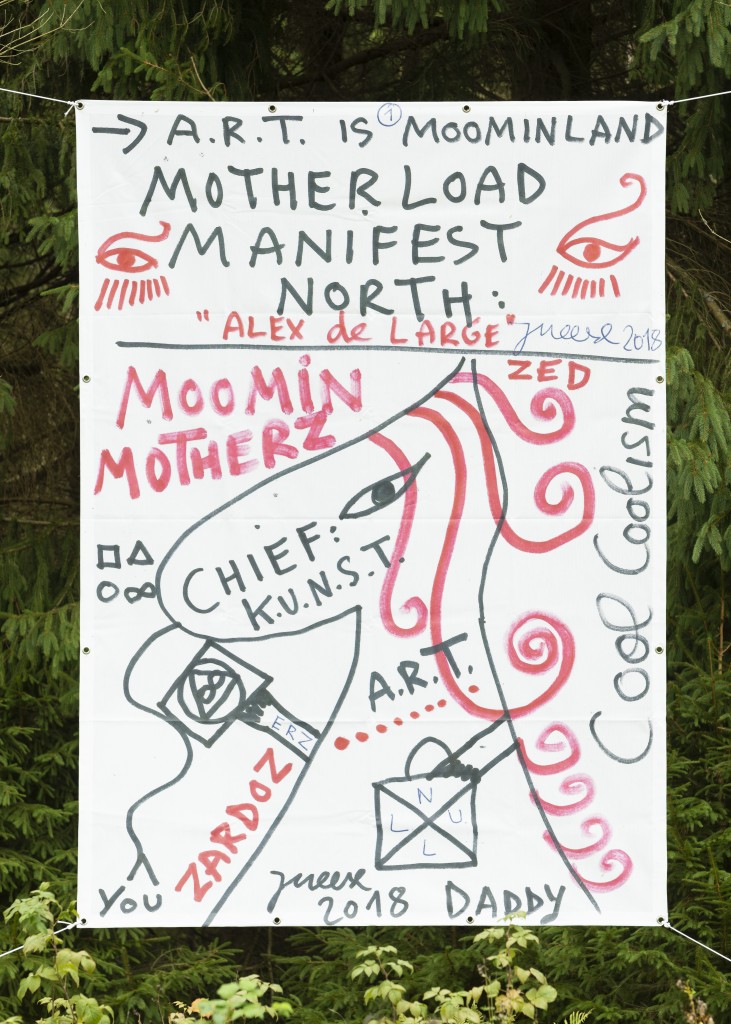 → A.R.T. IS ① MOOMINLAND
MOTHERLOAD
MANIFEST
NORTH:
"ALEX de LARGE" Meese 2018
ZED
MOOMIN
MOTHERZ
Cool Coolism
CHIEF:
K.U.N.S.T.
A.R.T.
ERZ
ZARDOZ
N
L U.
L
YOU
Meese
2018 DADDY